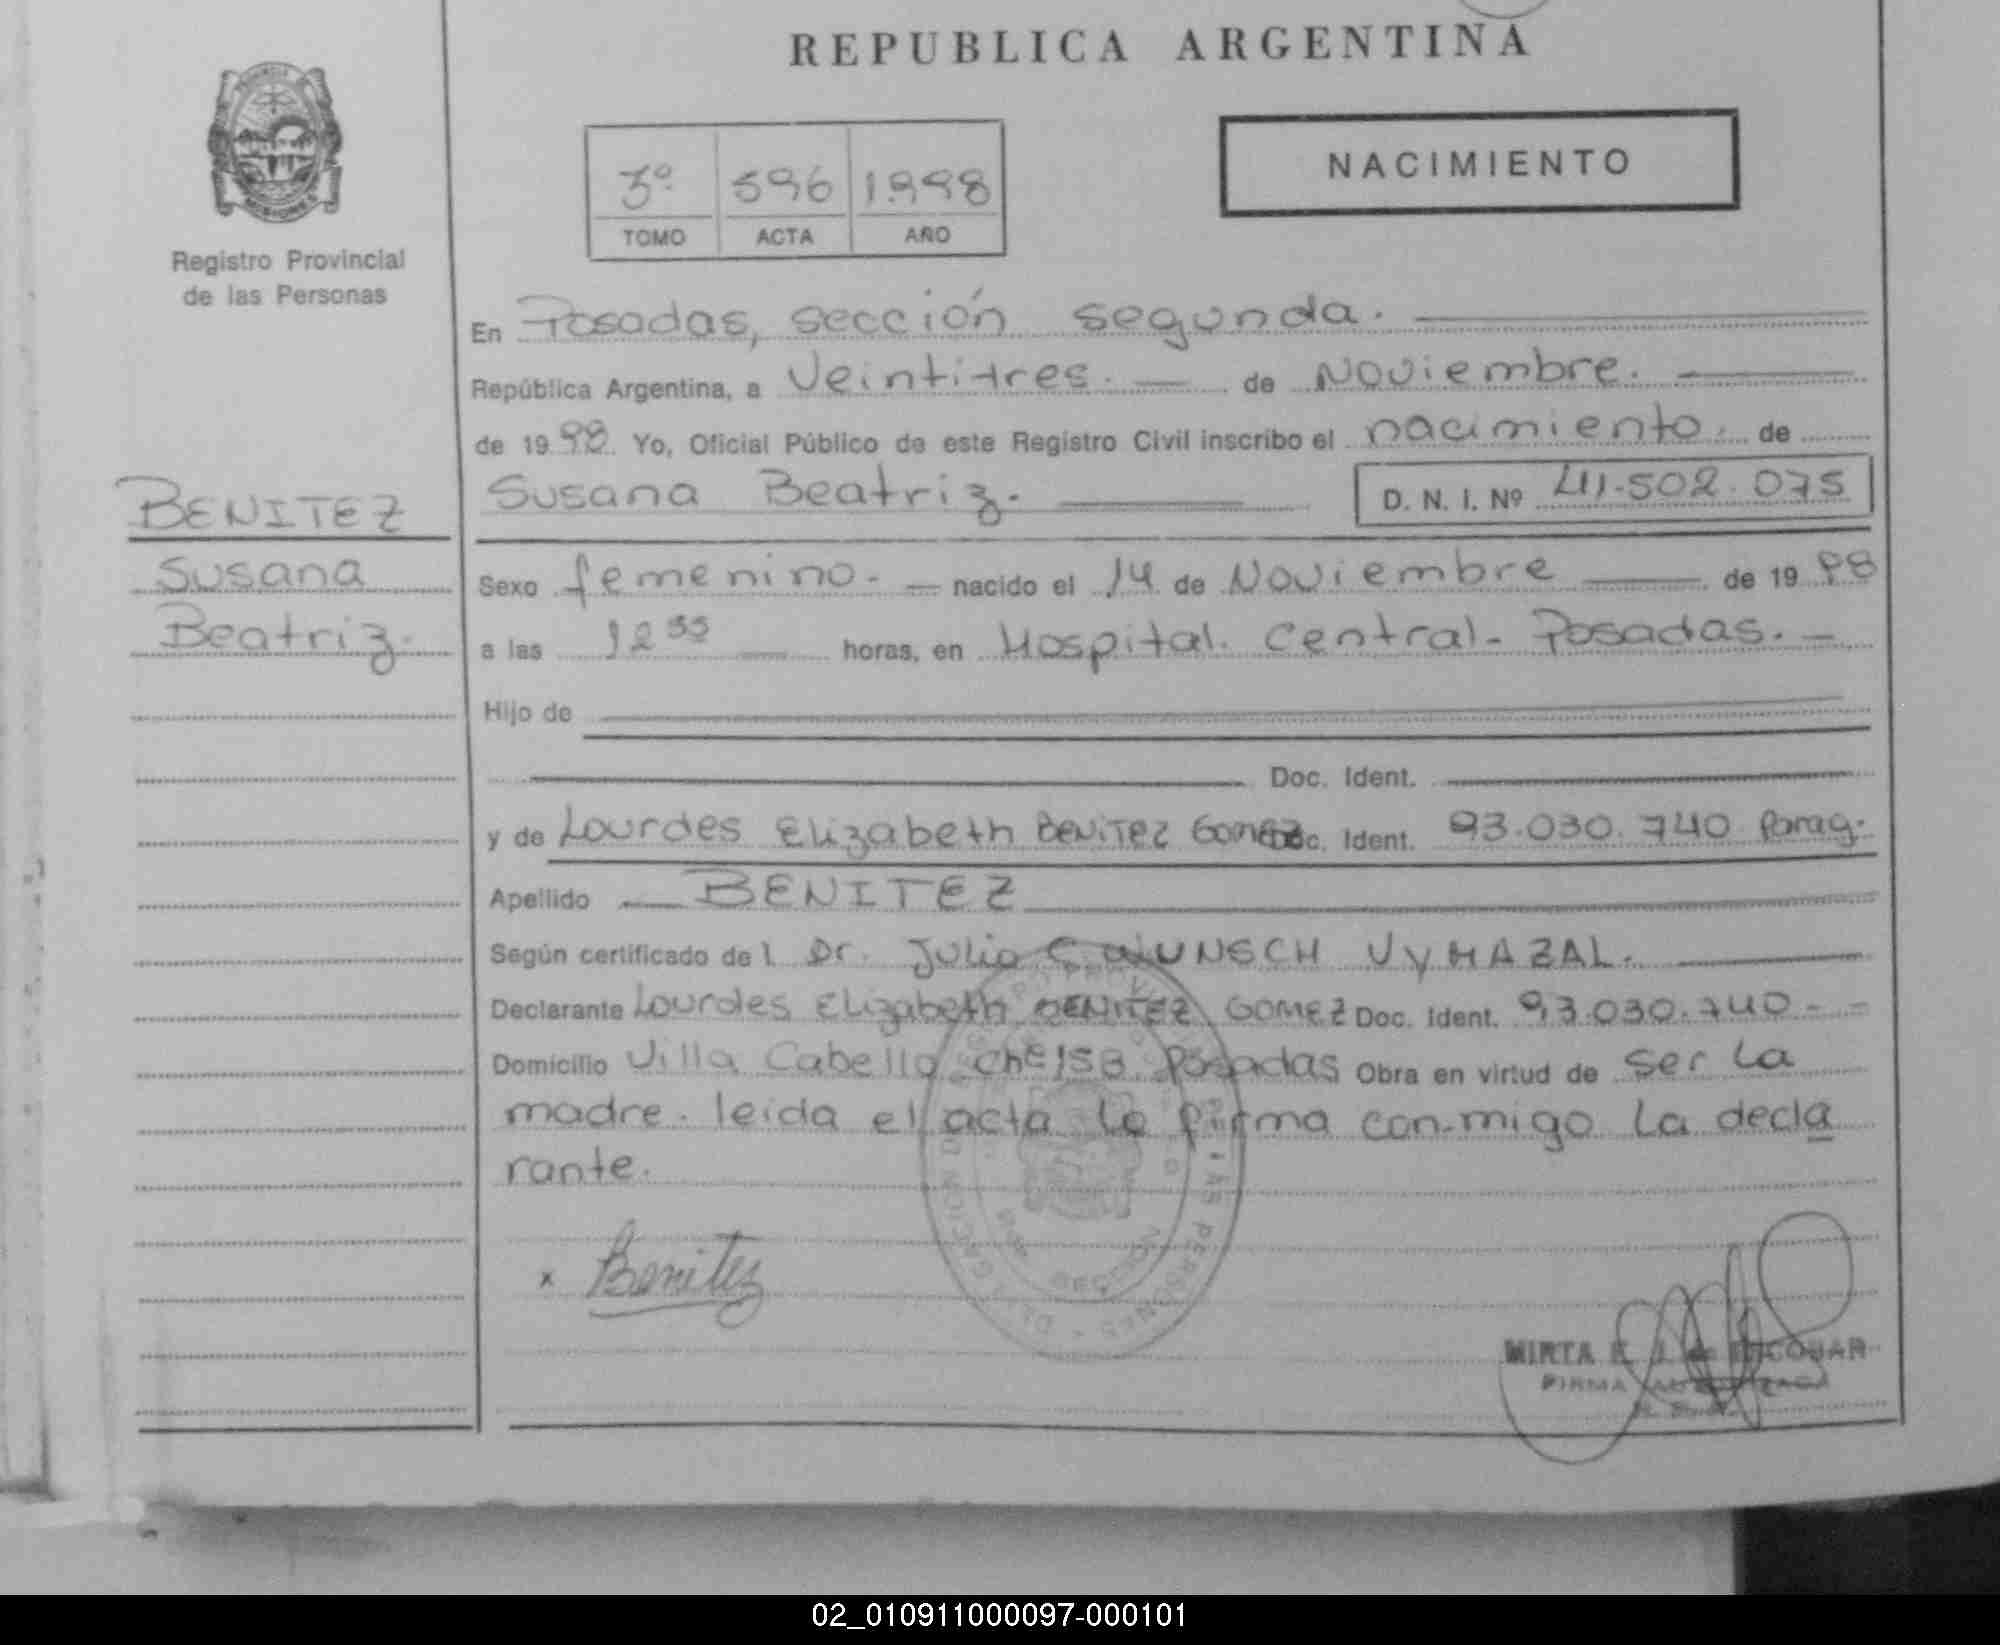 REPUBLICA ARGENTINA
NACIMIENTO
3º 596 1.998
TOMO ACTA AÑO
MISIONES
Registro Provincial
de las Personas
En Posadas, sección segunda.
República Argentina, a Veintitres. de Noviembre.
de 1998. Yo, Oficial Público de este Registro Civil inscribo el nacimiento. de
Susana Beatriz. D. N. I. Nº 41.502.075
BENITEZ
Susana
Beatriz.
Sexo femenino. nacido el 14 de Noviembre de 1998
a las 12 55 horas, en Hospital. Central. Posadas.
Hijo de
Doc. Ident.
y de Lourdes Elizabeth BENITEZ GOMEZ Doc. Ident. 93.030.740 Parag.
Apellido BENITEZ
Según certificado de l Dr. Julio C. WUNSCH VYHAZAL.
Declarante Lourdes Elizabeth BENITEZ GOMEZ Doc. Ident. 93.030.740
Domicilio Villa Cabello Posadas Obra en virtud de ser la
madre. leida el acta la firma con-migo la decla
rante.
x Benitez
MIRTA E. J. de ESCOBAR
FIRMA AUTORIZADA
02_010911000097-000101